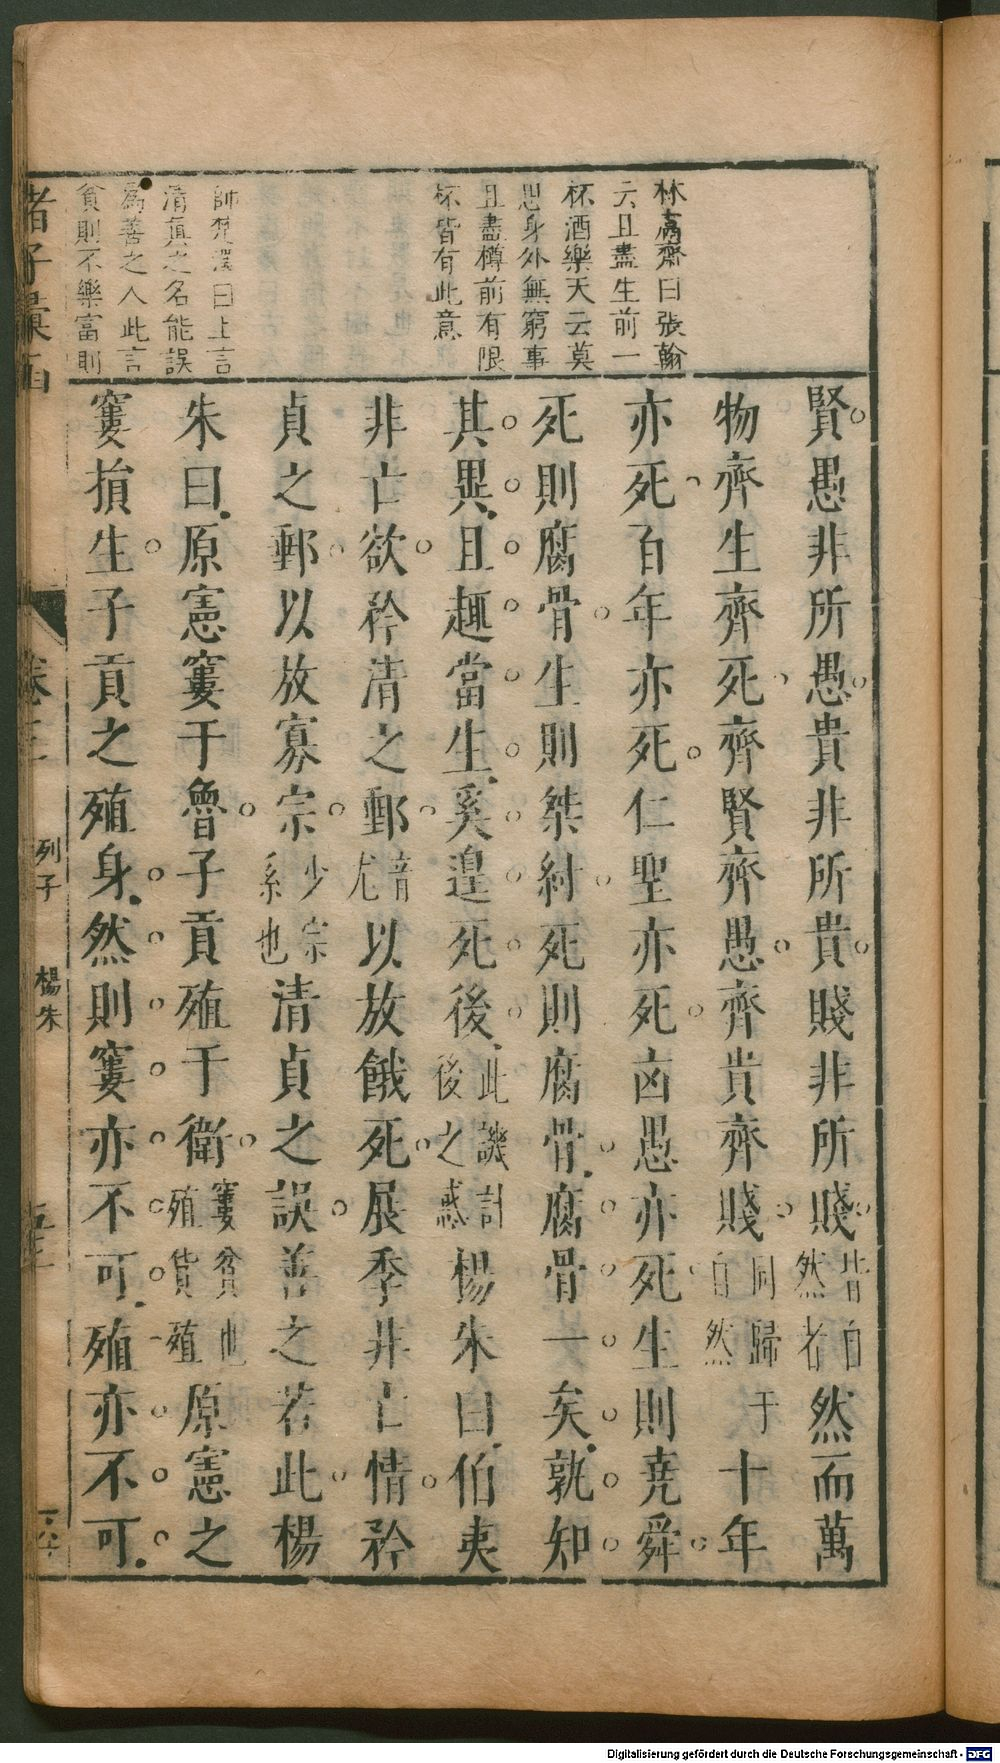 林鬳齋曰張翰
云且盡生前一
杯酒樂天云莫
思身外無窮事
且盡樽前有限
杯皆有此意
師楚澤曰上言
清貞之名能誤
為善之人此言
貧則不樂富則
賢愚非所愚貴非所貴賤非所賤皆自然者然而萬
物齊生齊死齊賢齊愚齊貴齊賤同歸于自然十年
亦死百年亦死仁聖亦死凶愚亦死生則堯舜
死則腐骨生則桀紂死則腐骨腐骨一矣孰知
其異且趣當生奚遑死後此譏計後之惑楊朱曰伯夷
非亡欲矜清之郵音尤以放餓死展季非亡情矜
貞之郵以放寡宗少宗系也清貞之誤善之若此楊
朱曰原憲窶于魯子貢殖于衛窶貧也殖貨殖原憲之
窶損生子貢之殖身然則窶亦不可殖亦不可
諸子彙函
卷三
列子
楊朱
Digitalisierung gefördert durch die Deutsche Forschungsgemeinschaft - DFG